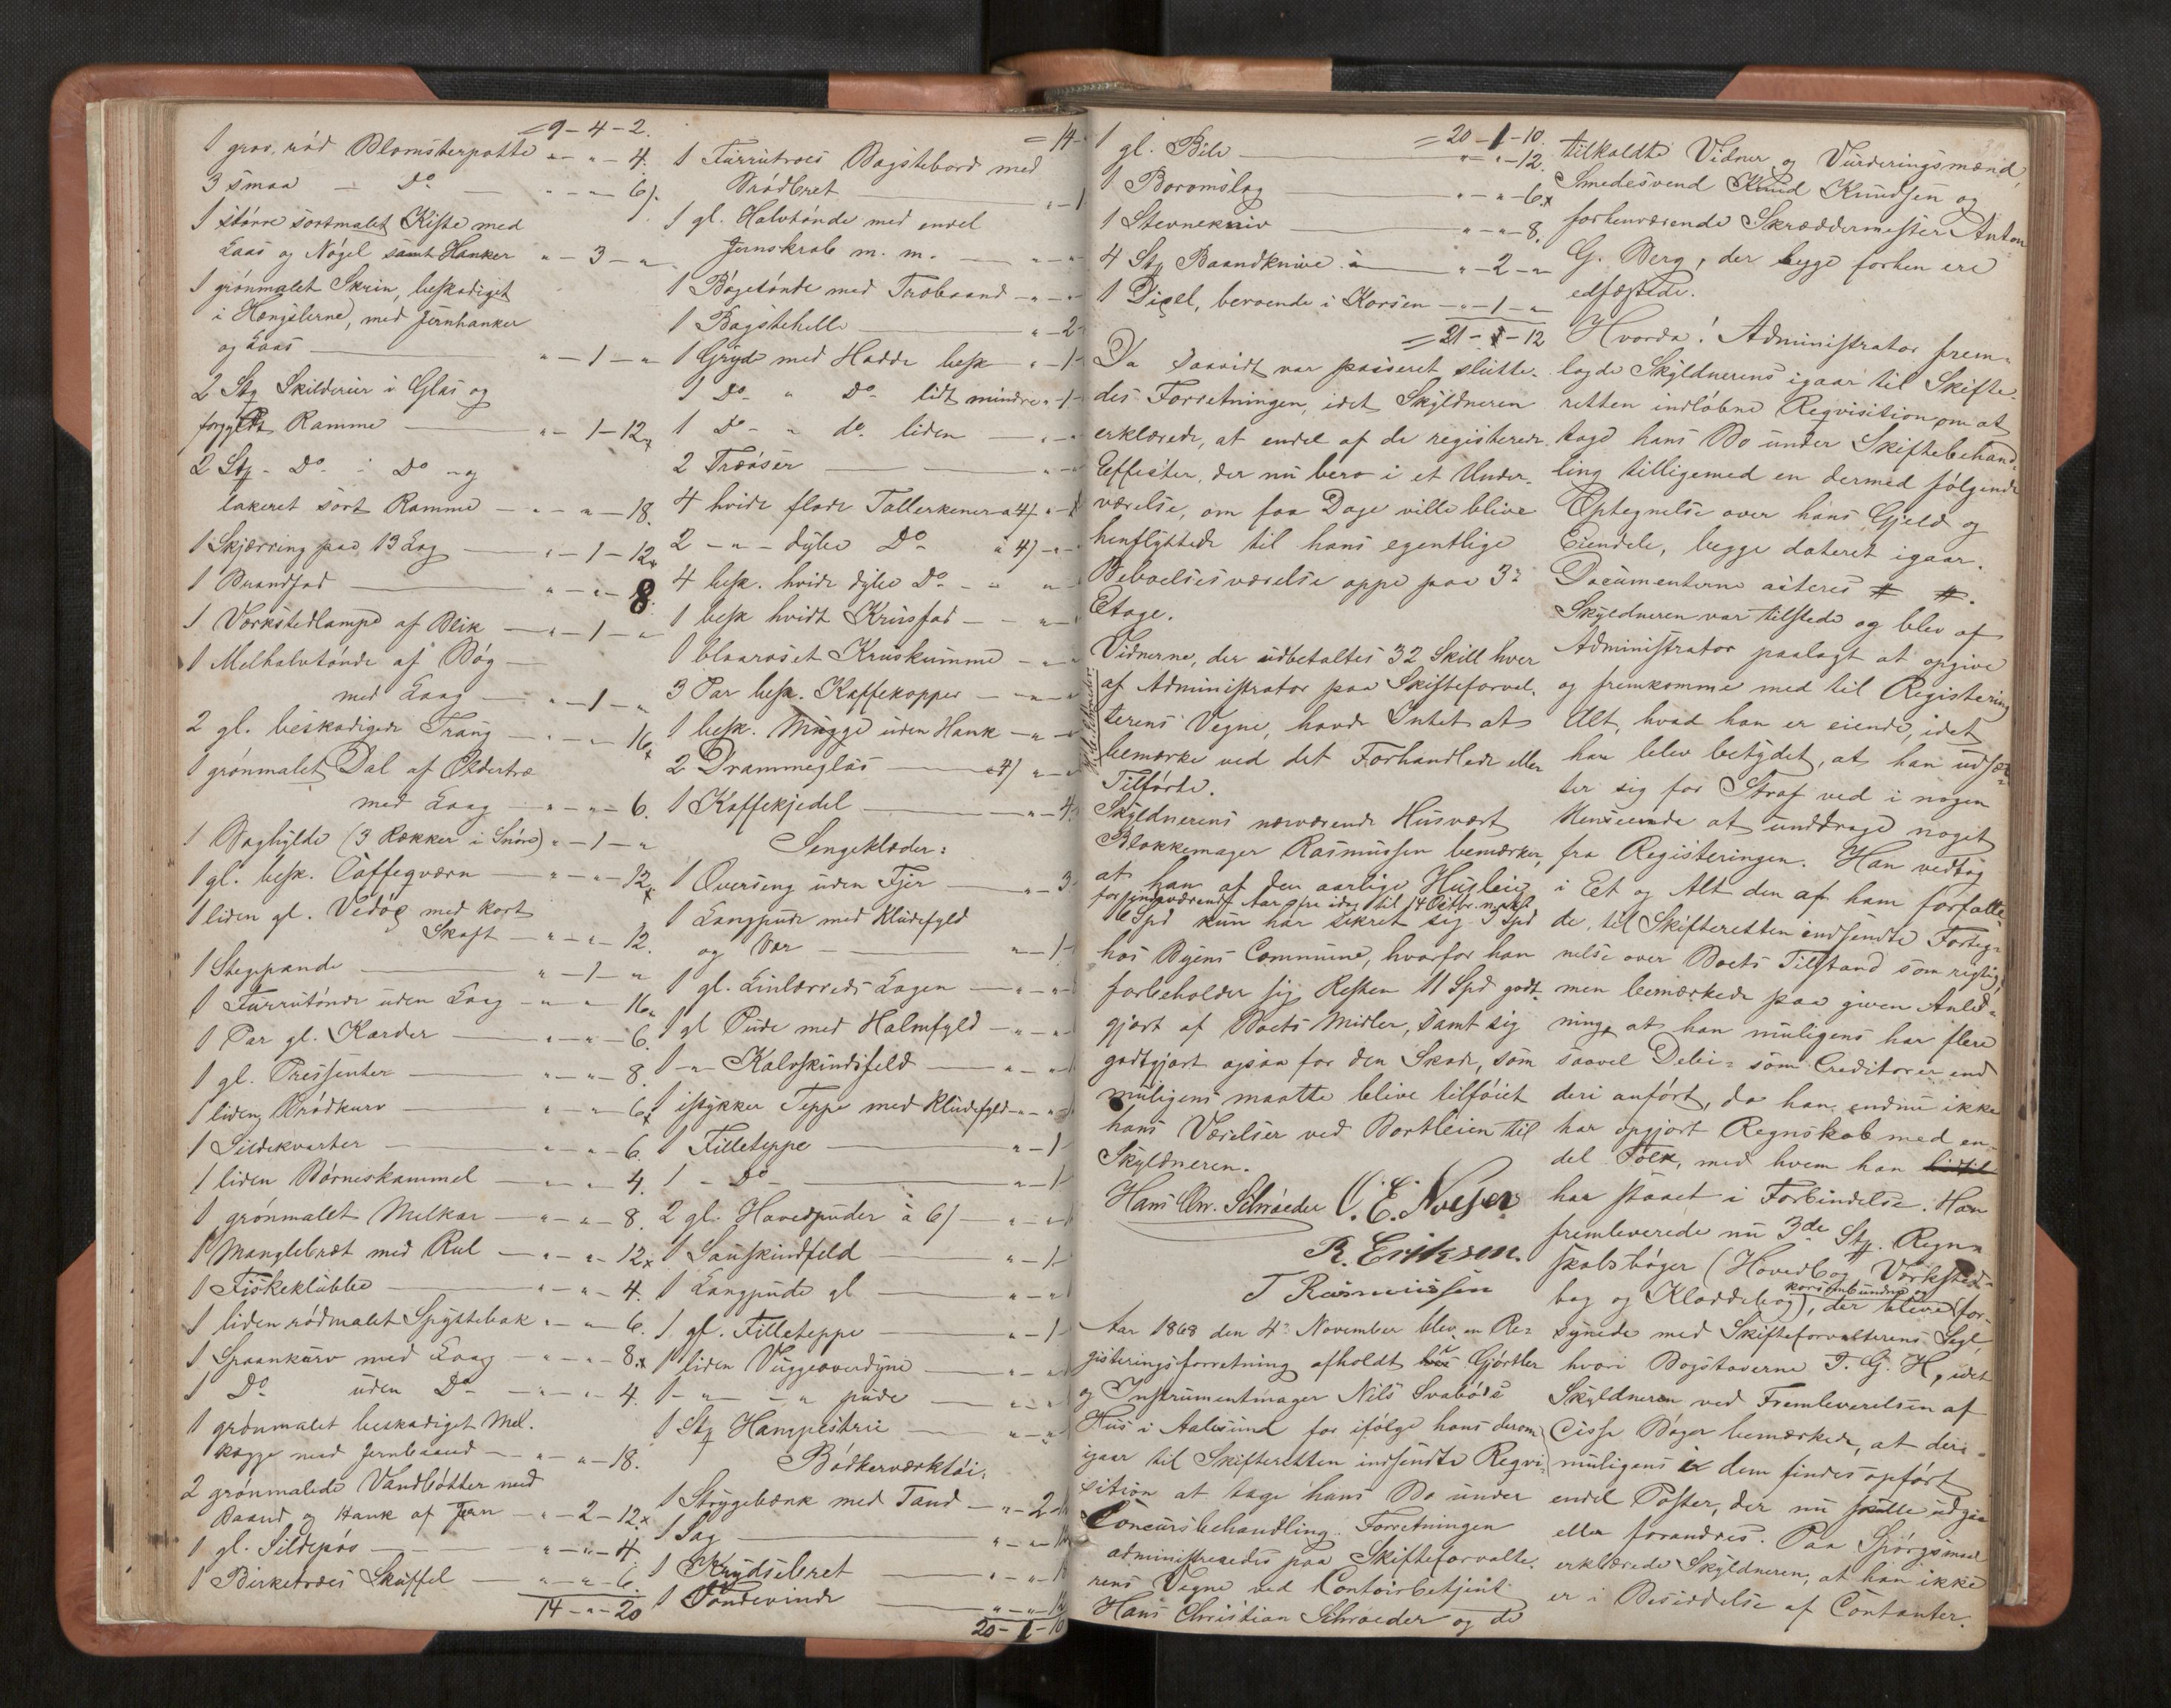 = 9 - 4 - 2.
1 grov. rød Blomsterpotte " - " - 4.
3 smaa - Do - " - " - 6/.
1 større sortmalet Kiste med
Laas og Nøgel samt Hanker " - 3 - "
1 grønmalet Skrin, beskadiget
i Hængslerne, med Jernhanker
og Laas " - 1 - "
2 Stk Skilderier i Glas og
forgyldt Ramme " - 1 - 12 x
2 Stk - Do - i Do - og
lakeret sort Ramme - " - " - 18.
1 Skjærring paa 13 Lag " - 1 - 12 x
1 Brandfad " - " - 8.
1 Værkstedlampe af Blik - " - 1 - "
1 Melhalvtønde af Bøg -
med Laag " - 1 - "
2 gl. beskadigede Traug - " - " - 16 x
1 grønmalet Dal af Oldertræ
med Laag - " - " - 6.
1 Baghylde (3 Rækker i Snøre) " - 1 - "
1 gl. besk. Caffeqværn - " - " - 12 x
1 liden gl. Vedøx med kort
Skaft - " - " - 12.
1 Stegepande " - 1 - "
1 Furrutønde uden Laag - " - " - 16 x
1 Par gl. Karder " - " - 6.
1 gl. Pressenter " - " - 8.
1 liden Brødkurv " - " - 6 x
1 Sildekvarter - " - " - 6.
1 liden Børneskammel - " - " - 4.
1 grønmalet Melkar - " - " - 8.
1 Manglebræt med Rul - " - " - 12 x
1 Fiskeklubbe " - " - 4.
1 liden rødmalet Spyttebak " - " - 6.
1 Spaankurv med Laag - " - " - 8 x
1 Do uden Do - " - " - 4.
1 grønmalet beskadiget Mel-
kagge med Jernbaand - " - " - 18.
2 grønmalede Vandbøtter med
Baand og Hank af Jern - " - 2 - 12 x
1 gl. Sildepøs " - " - 4.
1 Birketræes Skuffel " - " - 6.
14 - " - 20
= 14 -
1 Furrutræes Bagstebord med
Brødbret " - 1
1 gl. Halvtønde med endel
Jernskrab m. m. - " - "
1 Bøgetønde med Træbaand - " - "
1 Bagstehelle " - 2
1 Gryde med Hadde besk " - 1 -
1 Do - " Do - lidt mindre " - 1 -
1 Do - " do. liden - " - "
2 Træøser - " - "
4 hvide flade Tallerkener a 4/ " -
2 - " - dybe Do - à 4/ - "
4 besk. hvide dybe Do - - "
1 besk hvidt Kruusfad - - "
1 blaaroset Kruskumme - "
3 Par besk. Kaffekopper - - "
1 besk. Mugge uden Hank - "
2 Drammeglas a 4/ " -
1 Kaffekjedel " - 4.
Sengeklæder:
1 Overseng uden Fjer " - 3
1 Langpude med Kludefyld
og Var " - 1
1 gl. Linlærreds Lagen - " -
1 gl Pude med Halmfyld - " -
1 - " - Kalvskindsfeld - " -
1 istykker Teppe med Kludefyld - " -
1 Filleteppe " - 1
1 - Do - " - 1
2 gl. Hovedpuder à 6/ - " -
1 Sauskindfeld " - 1
1 Langpude gl " - "
1 gl. Filleteppe " - 1
1 liden Vuggeoverdyne - " -
1 - " - " pude - " -
1 Stk Hampestrie - " - "
Bødkerværktøi:
1 Strygebænk med Tand - " - 2
1 Sag " - " -
1 Krydsebret " - " -
1 Tøndevinde " - " - 12
20 - 1 - 10
= 20 - 1 - 10.
1 gl. Bile " - " - 12.
1 Boromslag " - " - 6 x
1 Stevnekniv " - " - 8.
4 Stk Baandknive à " - 2 - "
1 Dixel, beroende i Korsen " - 1 - "
= 21 - 1 - 12
Da saavidt var passeret slutte-
des Forretningen, idet Skyldneren
erklærede, at endel af de registerede
Effecter, der nu bero i et Under-
værelse, om faa Dage ville blive
henflyttede til hans egentlige
Beboelsesværelse oppe paa 3die
Etage.
Vidnerne, der udbetaltes 32 Skill hver
af Administrator paa Skifteforval-
terens Vegne, havde Intet at
bemærke ved det Forhandlede eller
Tilførte.
Skyldnerens nærværende Husvært
Blokkemager Rasmussen bemærker,
at han af den aarlige Husleie
for jeneværende Aar fra idag til 14 Octbr. næst
6 Spd kun har sikret sig 3 Spd
hos Byens Commune, hvorfor han
forbeholder sig Resten 11 Spd godt-
gjort af Boets Midler, samt sig
godtgjort ogsaa for den Skade, som
muligens maatte blive tilføiet
hans Værelser ved Bortleien til
Skyldneren.
Hans Chr. Schrøeder
R. Eriksen.
T Rasmussen
Aar 1868 den 4de November blev en Re-
gisteringsforretning afholdt hos Gjørtler
og Instrumentmager Nils Svabøes
Huus i Aalesund for ifølge hans derom
igaar til Skifteretten indsendte Reqvi-
sition at tage hans Bo under
Concursbehandling. Forretningen
administreredes paa Skifteforvalte-
rens Vegne ved Contoirbetjent
Hans Christian Schrøeder og de
tilkaldte Vidner og Vurderingsmænd,
Smedesvend Knud Knudsen og
forhenværende Skræddermester Anton
G. Berg, der begge forhen ere
edfæstede.
Hvorda! Administrator frem-
lagde Skyldnerens igaar til Skifte-
retten indløbne Reqvisition om at
tage hans Bo under Skiftebehand-
ling tilligemed en dermed følgende
Optegnelse over hans Gjeld og
Eiendele, begge dateret igaar.
Documenterne acteres # #.
Skyldneren var tilstede og blev af
Administrator paalagt at opgive
og fremkomme med til Registering
Alt, hvad han er eiende, idet
han blev betydet, at han udsæt-
ter sig for Straf ved i nogen
Henseende at unddrage noget
fra Registeringen. Han vedtog
i Eet og Alt den af ham forfatte-
de, til Skifteretten indsendte Forteg-
nelse over Boets Tilstand som rigtig,
men bemærkede paa given Anled-
ning, at han muligens har flere
saavel Debi- som Creditorer end
deri anført, da han endnu ikke
har opgjort Regnskab med en-
del Folk, med hvem han
har staaet i Forbindelse. Han
fremleverede nu 3de Stk. Regn-
skabsbøger (Hovedbog, Værksted-
bog og Kladdebog), der bleve korsombundne og for-
synede med Skifteforvalterens Segl,
hvori Bogstaverne T. G. H, idet
Skyldneren ved Fremleverelsen af
disse Bøger bemærkede, at der
muligens i dem findes opført
endel Poster, der nu skulle udgaa
eller forandres. Paa Spørgsmaal
erklærede Skyldneren, at han ikke
er i Besiddelse af Contanter.